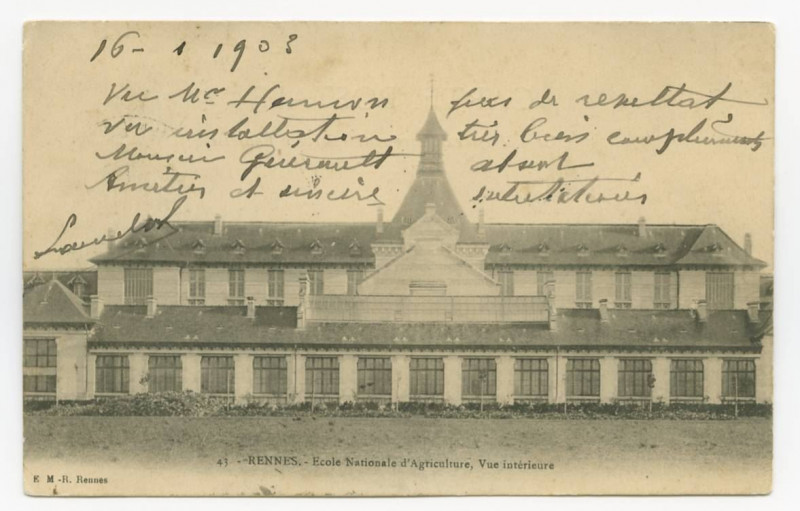 16 - 1 1903
Vu Mr Hamon pas de resultat
vu installation très bien compliments
Monsieur Guérault absent
Amitiés et sincère salutations
43 - RENNES. - Ecole Nationale d'Agriculture, Vue intérieure
E M -R. Rennes